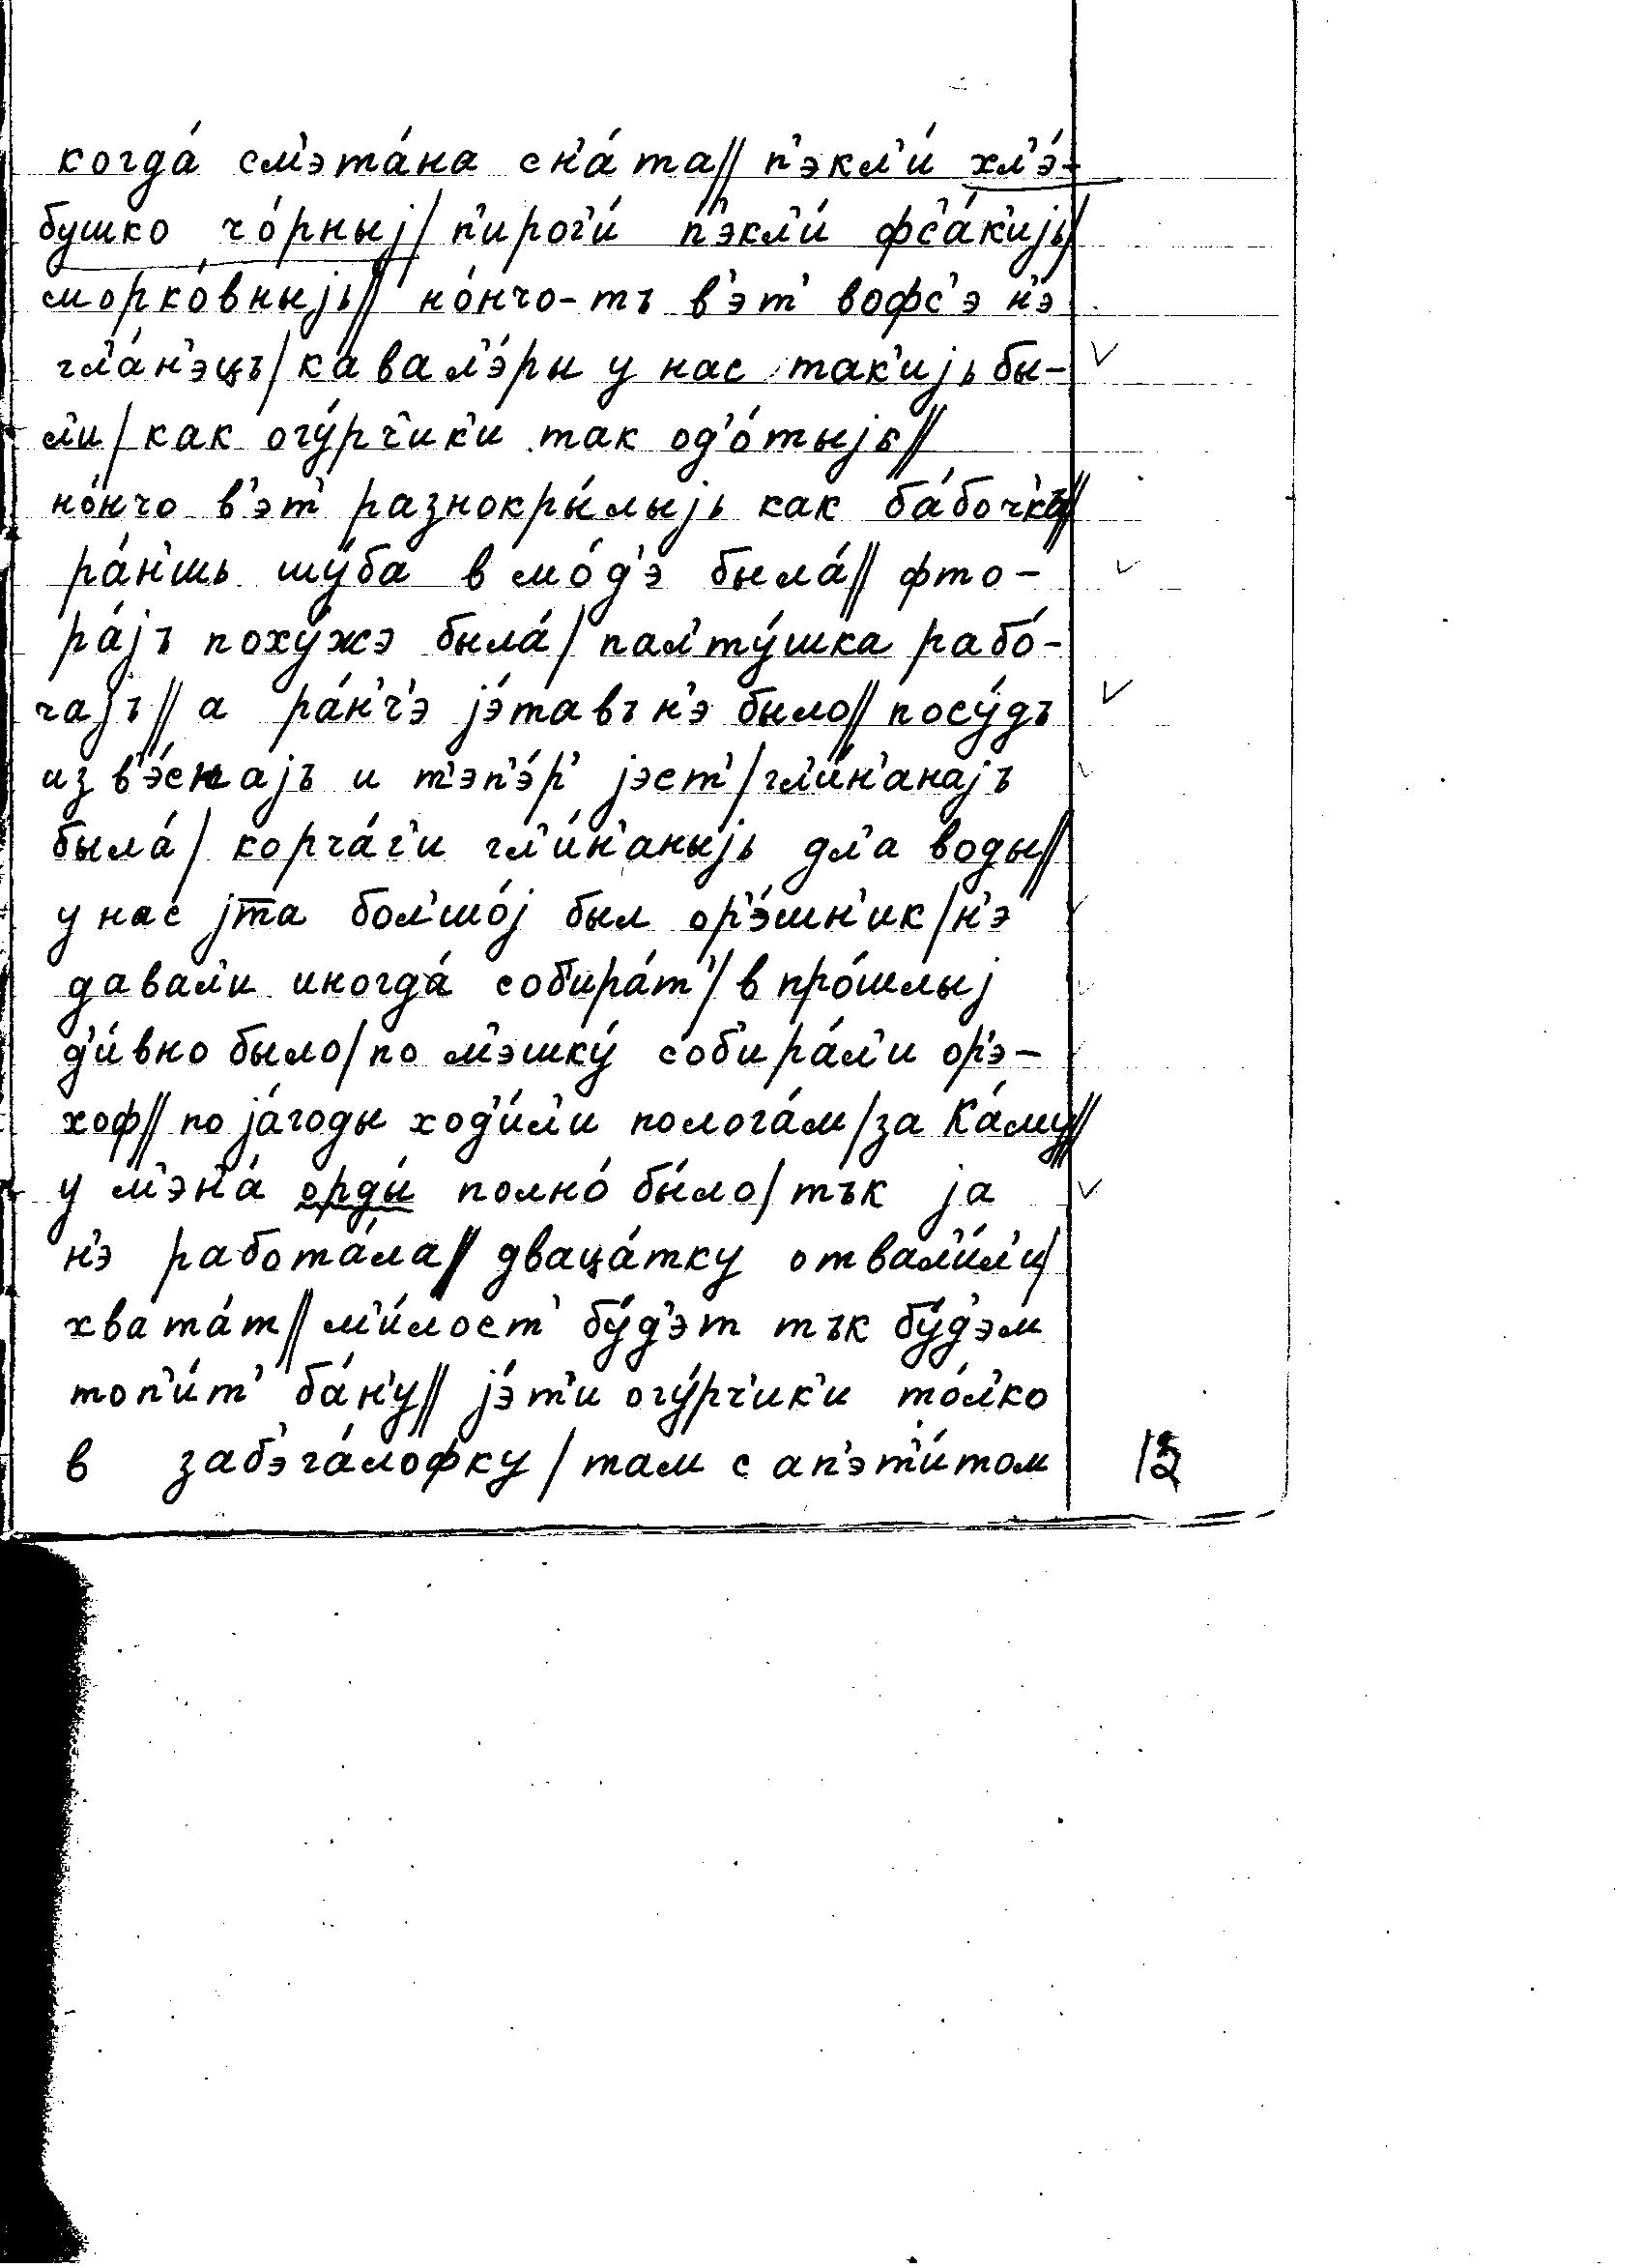 когда́ см'эта́на сн'а́та// п'экл'и́ хл'э́-
бушко чо́рныј/ п'ирог'и́ п'экл'и́ фс'а́к'ијь/
морко́вныјь// но́нчо-тъ в'эт' вофс'э н'э
гл'а́н'эцъ/ кавал'э́ры у нас так'ијь бы-
л'и/ как огу́рч'ик'и так од'о́тыјь//
но́нчо в'эт' разнокры́лыјь как ба́бочкъ//
ра́н'шь шу́ба в мо́д'э была́// фто-
ра́јъ поху́жэ была́/ пал'ту́шка рабо́-
чајъ// а ра́н'ч'э јэ́тавъ н'э было// посу́дъ
из в'э́снајъ и т'эп'э́р' јэст'/ гл'и́н'анајъ
была́/ корча́г'и гл'и́н'аныјь дл'а воды//
у нас јта бол'шо́ј был ор'э́шн'ик/ н'э
давал'и иногда́ соб'ира́т'/ в про́шлыј
д'и́вно было/ по м'эшку́ соб'ира́л'и ор'э-
хоф// по јáгоды ход'и́л'и полога́м/ за Ка́му//
у м'эн'а́ орды́ полно́ бы́ло/ тък ја
н'э работа́ла// дваца́тку отвал'и́л'и/
хвата́т// м'и́лост' бу́д'эт тък бу́д'эм
топ'и́т' ба́н'у// јэ́т'и огу́рч'ик'и то́л'ко
в заб'эга́лофку/ там с ап'эт'и́том